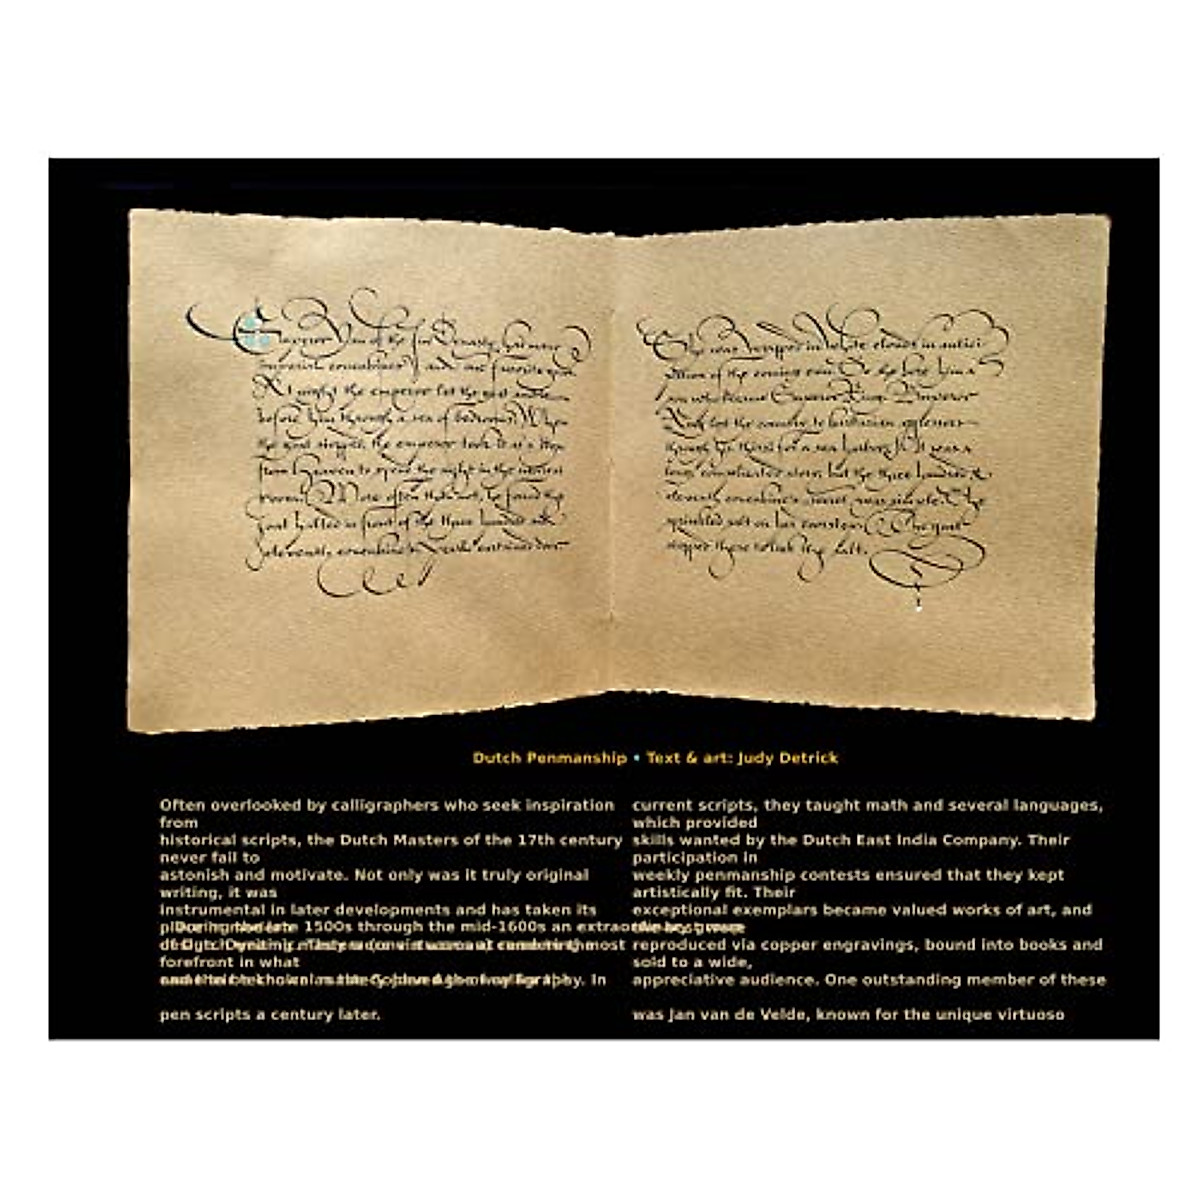 Emperor Yan of the Jin Dynasty had many
imperial concubines and one favorite goat.
At night the emperor let the goat amble
before him through a sea of bedrooms. When
the goat stopped, the emperor took it as a step
from Heaven to spend the night in the nearest
room. More often than not, he found the
goat halted in front of the three hundred and
eleventh concubine's
She was wrapped in white clouds in antici-
pation of the coming rain. So she bore him a
son who became Emperor King. Emperor
lost the country to barbarian
through his thirst for a sea It was a
long complicated story, but the three hundred &
eleventh concubine's secret was simple. She
sprinkled salt on her doorstep. The goat
stopped there to lick the salt.
Dutch Penmanship • Text & art: Judy Detrick
Often overlooked by calligraphers who seek inspiration
from
historical scripts, the Dutch Masters of the 17th century
never fail to
astonish and motivate. Not only was it truly original
writing, it was
instrumental in later developments and has taken its
During the late 1500s through the mid-1600s an
most
forefront in what
In
pen scripts a century later.
current scripts, they taught math and several languages,
which provided
skills wanted by the Dutch East India Company. Their
participation in
weekly penmanship contests ensured that they kept
artistically fit. Their
exceptional exemplars became valued works of art, and
reproduced via copper engravings, bound into books and
sold to a wide,
appreciative audience. One outstanding member of these
was Jan van de Velde, known for the unique virtuoso